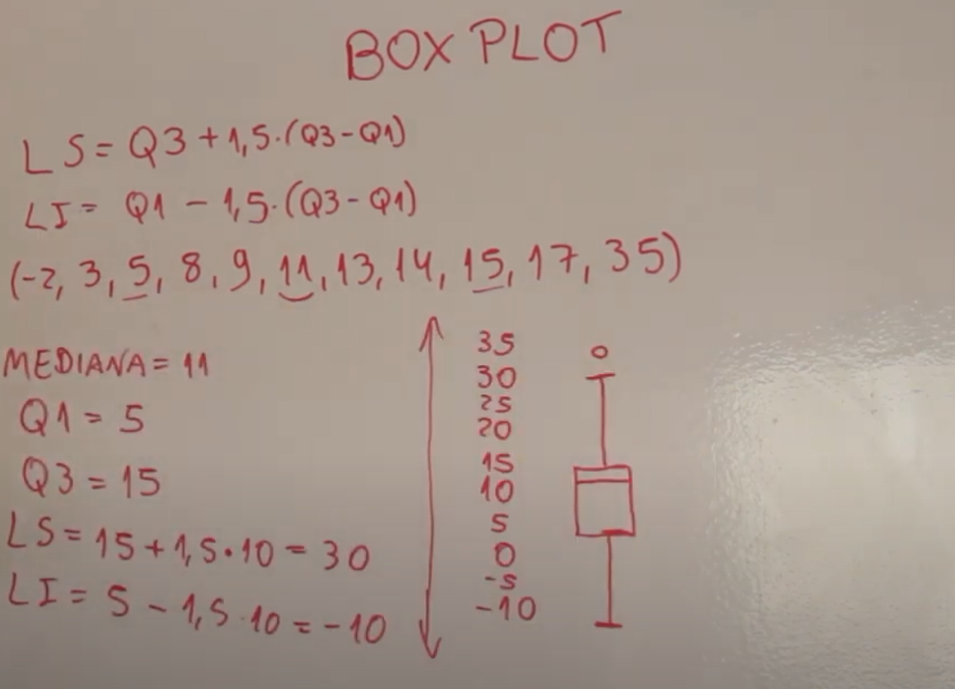 BOX PLOT
LS = Q3 + 1,5·(Q3-Q1)
LI = Q1 - 1,5·(Q3-Q1)
(-2, 3, 5, 8, 9, 11, 13, 14, 15, 17, 35)
MEDIANA = 11
Q1 = 5
Q3 = 15
LS = 15 + 1,5·10 = 30
LI = 5 - 1,5·10 = -10
35
30
25
20
15
10
5
0
-5
-10